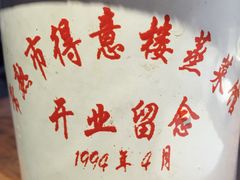 常熟市得意楼蒸菜馆
开业留念
1994年4月